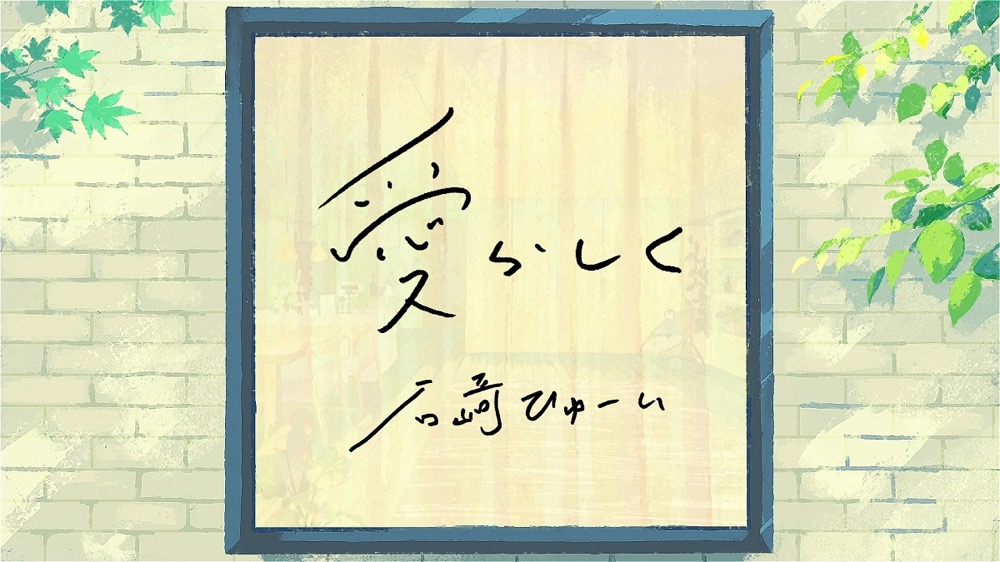 愛らしく
石崎ひゅーい